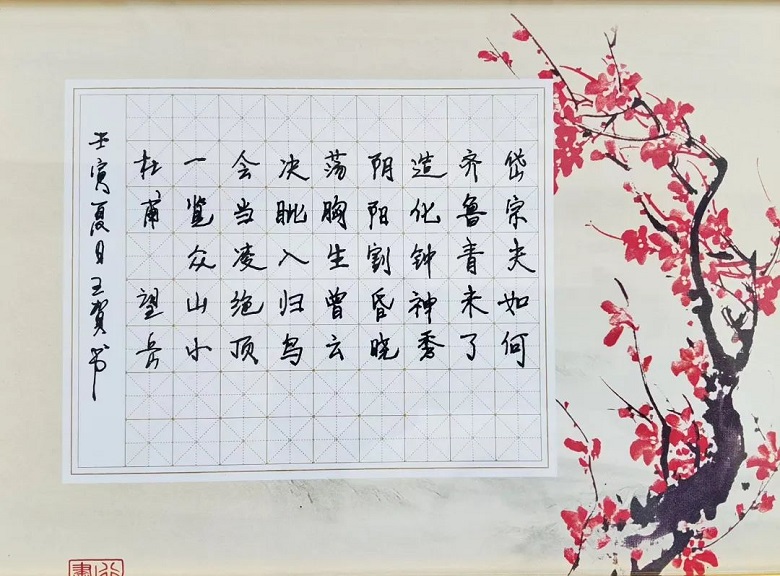 岱宗夫如何
齐鲁青未了
造化钟神秀
阴阳割昏晓
荡胸生曾云
决眦入归鸟
会当凌绝顶
一览众山小
杜甫 望岳
壬寅夏日王贺书